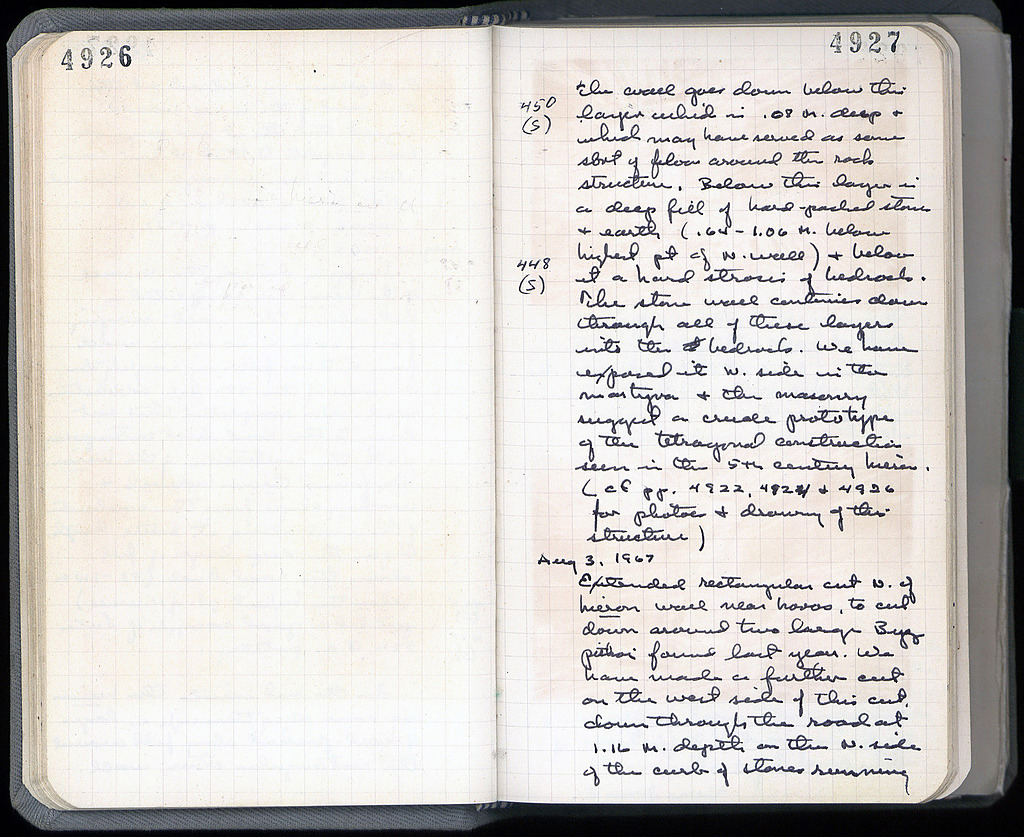 4926
4927
450
(S)
The wall goes down below this
layer which is .08 M. deep +
which may have served as some
sort of floor around the rock
structure. Below this layer is
a deep fill of hard-packed stone
+ earth (.64 - 1.06 M. below
highest pt of N. wall) + below
448
(S)
it a hard strosis of bedrock.
The stone wall continues down
through all of these layers
into the bedrock. We have
exposed it N. side in the
+ the masonry
suggest a crude prototype
of the tetragonal construction
seen in the 5th century hieron.
(cf pp. 4922, 4924 + 4926
for photos + drawing of this
structure)
Aug 3, 1967
Extended rectangular cut N. of
hieron wall near horos, to cut
down around two large Byz
pithoi found last year. We
have made a further cut
on the west side of this cut,
down through the road at
1.16 M. depth on the N. side
of the curb of stones running